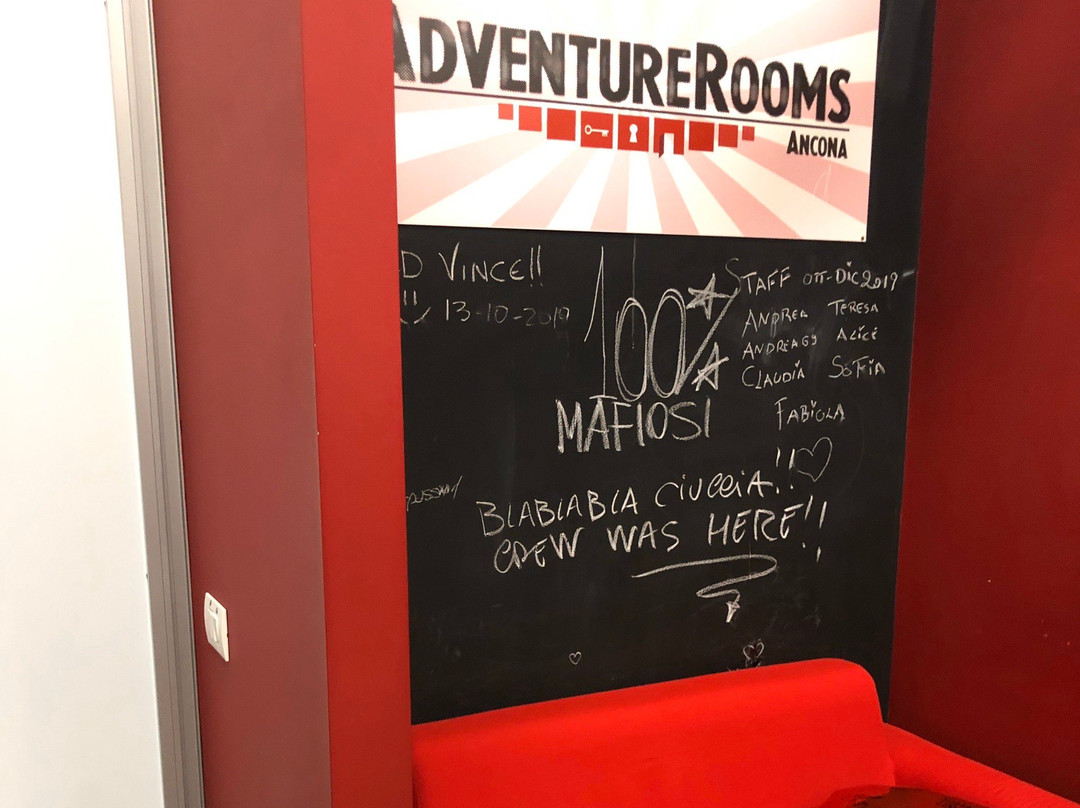 ADVENTUREROOMS
ANCONA
D VINCE!!
!! 13-10-2019
100%
MAFIOSI
STAFF OTT-DIC 2019
ANDREA TERESA
ALICE
CLAUDIA SOFIA
FABIOLA
BLABLABLA CIUCCIA!!
CREW WAS HERE!!